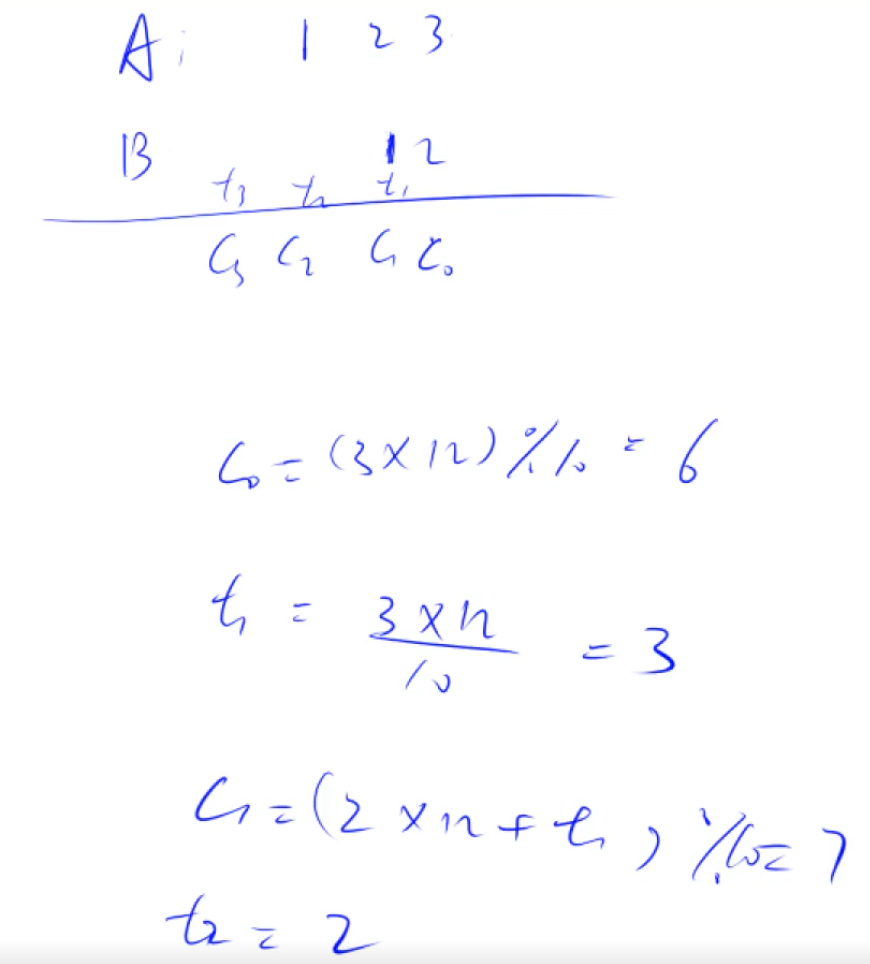 A: 1 2 3
B 12
t₃ t₂ t₁
C₃ C₂ C₁ C₀
C₀ = (3 × 12) % 10 = 6
t₁ = 3 × 12 / 10 = 3
C₁ = (2 × 12 + t₁) % 10 = 7
t₂ = 2